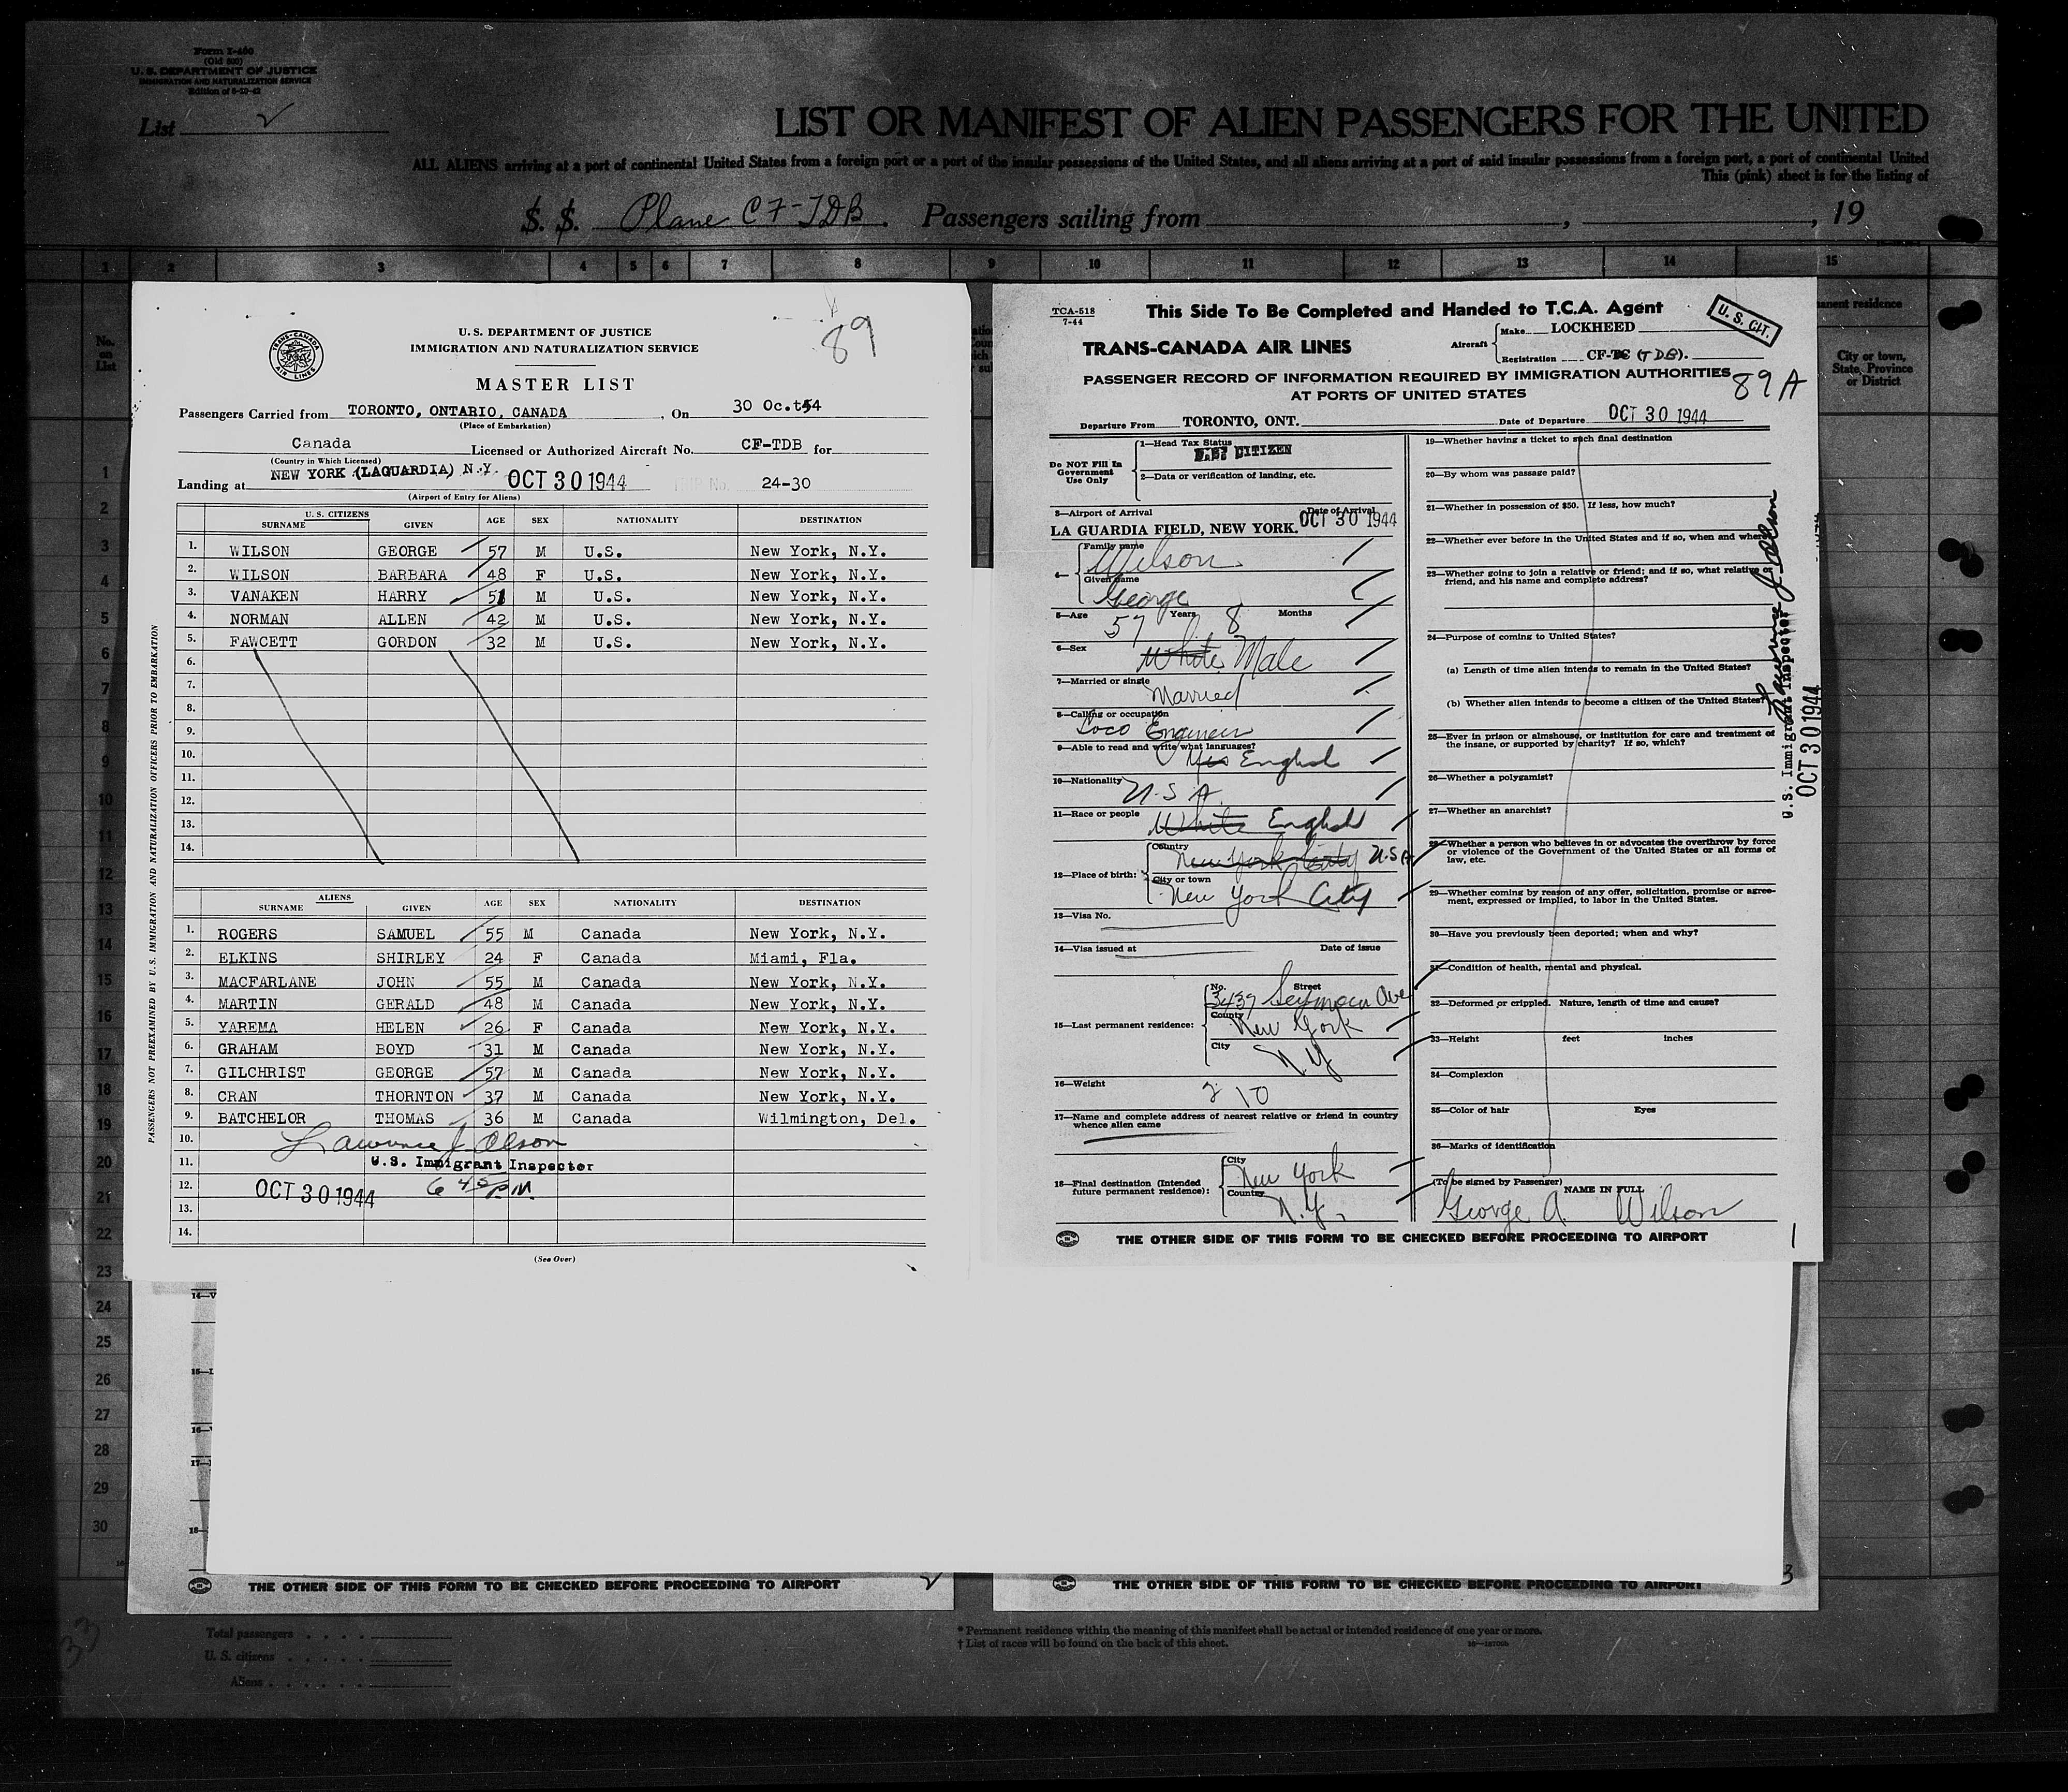 Form I-466
(Old 500)
U. S. DEPARTMENT OF JUSTICE
IMMIGRATION AND NATURALIZATION SERVICE
List
LIST OR MANIFEST OF ALIEN PASSENGERS FOR THE UNITED
ALL ALIENS arriving at a port of continental United States from a foreign port or a port of the insular possessions of the United States, and all aliens arriving at a port of said insular possessions from a foreign port, a port of continental United
This (pink) sheet is for the listing of
S. S. Plane CF-TDB. Passengers sailing from , , 19
1 2 3 4 5 6 7 8 9 10 11 12 13 14 15
No. on List
manent residence
City or town, State, Province or District
1
2
3
4
5
6
7
8
9
10
11
12
13
14
15
16
17
18
19
20
21
22
23
24
25
26
27
28
29
30
TRANS-CANADA AIR LINES
89
U. S. DEPARTMENT OF JUSTICE
IMMIGRATION AND NATURALIZATION SERVICE
MASTER LIST
Passengers Carried from TORONTO, ONTARIO, CANADA, On 30 Oc.t54
(Place of Embarkation)
Canada Licensed or Authorized Aircraft No. CF-TDB for
(Country in Which Licensed)
NEW YORK (LAGUARDIA) N.Y.
Landing at OCT 30 1944 TRIP No. 24-30
(Airport of Entry for Aliens)
U. S. CITIZENS
SURNAME GIVEN AGE SEX NATIONALITY DESTINATION
1. WILSON GEORGE 57 M U.S. New York, N.Y.
2. WILSON BARBARA 48 F U.S. New York, N.Y.
3. VANAKEN HARRY 51 M U.S. New York, N.Y.
4. NORMAN ALLEN 42 M U.S. New York, N.Y.
5. FAWCETT GORDON 32 M U.S. New York, N.Y.
6.
7.
8.
9.
10.
11.
12.
13.
14.
ALIENS
SURNAME GIVEN AGE SEX NATIONALITY DESTINATION
1. ROGERS SAMUEL 55 M Canada New York, N.Y.
2. ELKINS SHIRLEY 24 F Canada Miami, Fla.
3. MACFARLANE JOHN 55 M Canada New York, N.Y.
4. MARTIN GERALD 48 M Canada New York, N.Y.
5. YAREMA HELEN 26 F Canada New York, N.Y.
6. GRAHAM BOYD 31 M Canada New York, N.Y.
7. GILCHRIST GEORGE 57 M Canada New York, N.Y.
8. CRAN THORNTON 37 M Canada New York, N.Y.
9. BATCHELOR THOMAS 36 M Canada Wilmington, Del.
10. Lawrence J. Olson
11. U.S. Immigrant Inspector
12. OCT 30 1944 6 45 P.M.
13.
14.
(See Over)
PASSENGERS NOT PREEXAMINED BY U.S. IMMIGRATION AND NATURALIZATION OFFICERS PRIOR TO EMBARKATION
TCA-518
7-44
This Side To Be Completed and Handed to T.C.A. Agent
U. S. CIT.
TRANS-CANADA AIR LINES
Aircraft Make LOCKHEED
Registration CF-TC (TDB).
PASSENGER RECORD OF INFORMATION REQUIRED BY IMMIGRATION AUTHORITIES
AT PORTS OF UNITED STATES
89A
Departure From TORONTO, ONT. Date of Departure OCT 30 1944
Do NOT Fill In Government Use Only
1—Head Tax Status CITIZEN
2—Data or verification of landing, etc.
3—Airport of Arrival Date of Arrival
LA GUARDIA FIELD, NEW YORK. OCT 30 1944
4— Family name Wilson
Given name George
5—Age 57 Years 8 Months
6—Sex White Male
7—Married or single Married
8—Calling or occupation Loco Engineer
9—Able to read and write what languages? Yes English
10—Nationality U.S.A.
11—Race or people White English
12—Place of birth: Country New York City U.S.A
City or town New York City
13—Visa No.
14—Visa issued at Date of issue
15—Last permanent residence: No. Street 3437 Seymour Ave
County New York
City N.Y
16—Weight 210
17—Name and complete address of nearest relative or friend in country whence alien came
18—Final destination (Intended future permanent residence): City New York
Country N.Y.
19—Whether having a ticket to such final destination
20—By whom was passage paid?
21—Whether in possession of $50. If less, how much?
22—Whether ever before in the United States and if so, when and where
23—Whether going to join a relative or friend; and if so, what relative or friend, and his name and complete address?
24—Purpose of coming to United States?
(a) Length of time alien intends to remain in the United States?
(b) Whether alien intends to become a citizen of the United States?
25—Ever in prison or almshouse, or institution for care and treatment of the insane, or supported by charity? If so, which?
26—Whether a polygamist?
27—Whether an anarchist?
28—Whether a person who believes in or advocates the overthrow by force or violence of the Government of the United States or all forms of law, etc.
29—Whether coming by reason of any offer, solicitation, promise or agreement, expressed or implied, to labor in the United States.
30—Have you previously been deported; when and why?
31—Condition of health, mental and physical.
32—Deformed or crippled. Nature, length of time and cause?
33—Height feet inches
34—Complexion
35—Color of hair Eyes
36—Marks of identification
(To be signed by Passenger) NAME IN FULL
George A. Wilson
THE OTHER SIDE OF THIS FORM TO BE CHECKED BEFORE PROCEEDING TO AIRPORT 1
Lawrence J. Olson
U.S. Immigrant Inspector
OCT 30 1944
THE OTHER SIDE OF THIS FORM TO BE CHECKED BEFORE PROCEEDING TO AIRPORT
THE OTHER SIDE OF THIS FORM TO BE CHECKED BEFORE PROCEEDING TO AIRPORT 3
33
Total passengers
U. S. citizens
Aliens
* Permanent residence within the meaning of this manifest shall be actual or intended residence of one year or more.
† List of races will be found on the back of this sheet.